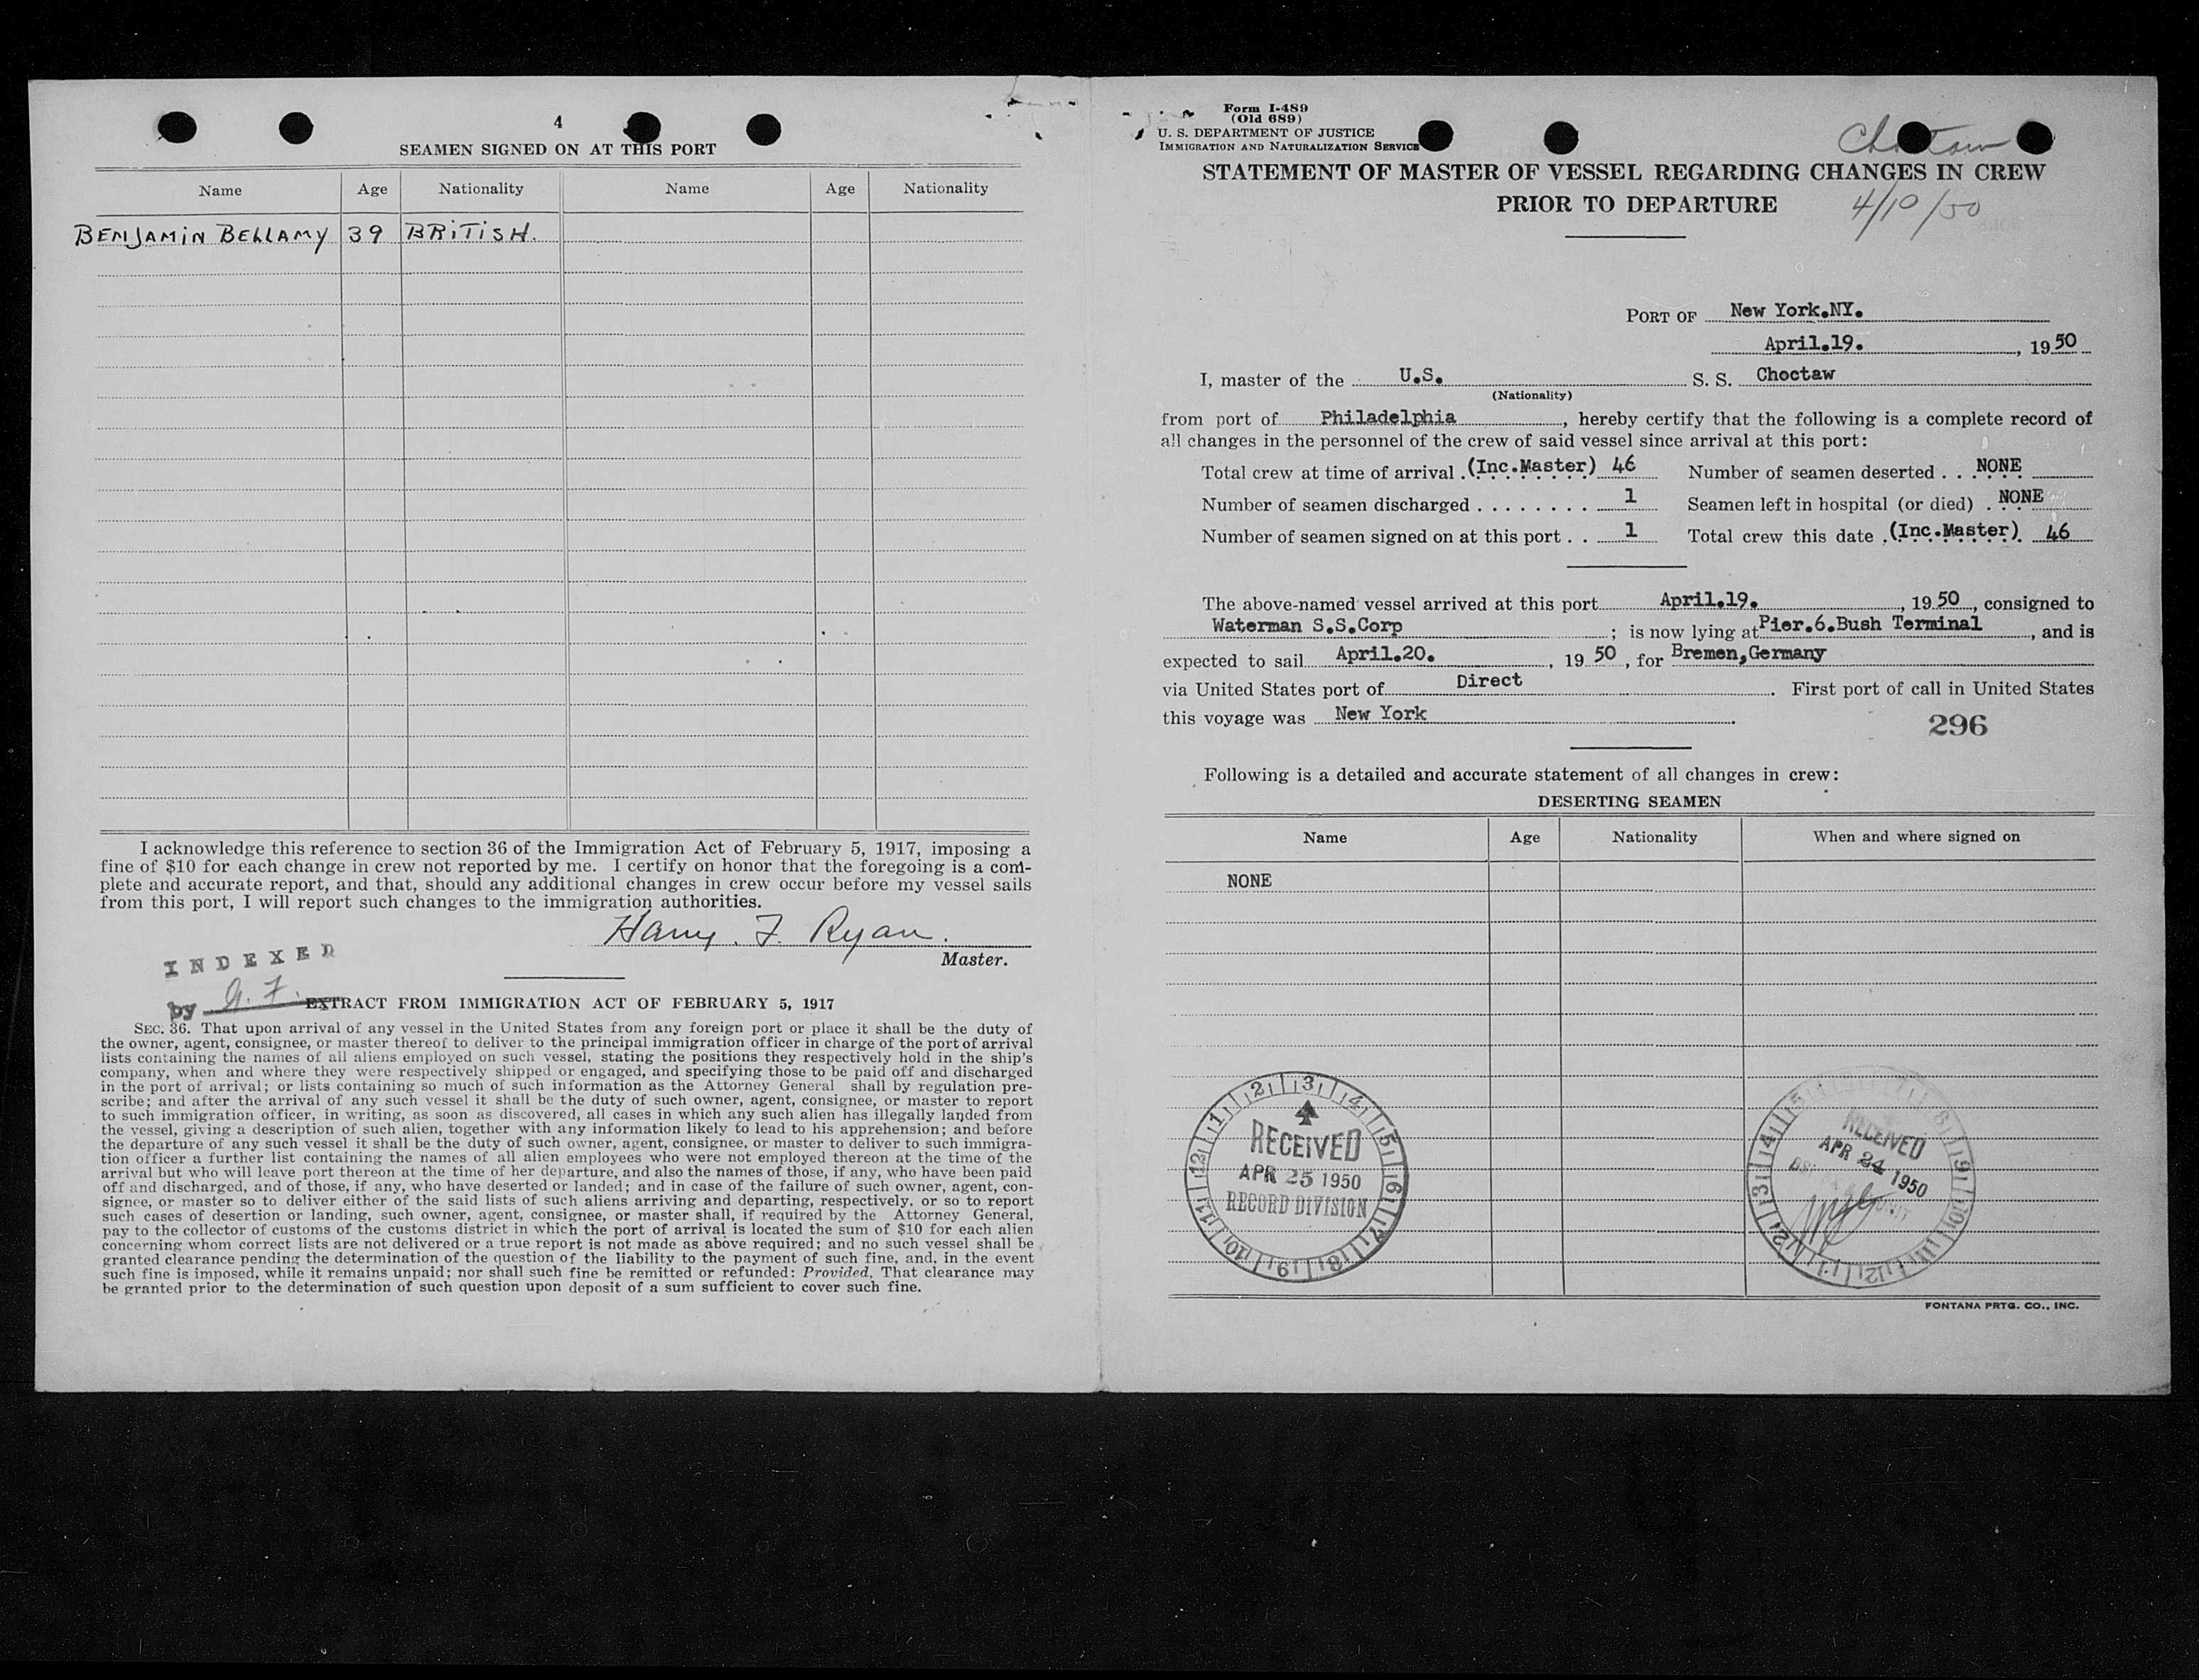 4
SEAMEN SIGNED ON AT THIS PORT
Name Age Nationality Name Age Nationality
BENJAMIN BELLAMY 39 BRITISH.
I acknowledge this reference to section 36 of the Immigration Act of February 5, 1917, imposing a
fine of $10 for each change in crew not reported by me. I certify on honor that the foregoing is a com-
plete and accurate report, and that, should any additional changes in crew occur before my vessel sails
from this port, I will report such changes to the immigration authorities.
Harry. F. Ryan.
Master.
INDEXED
by G. F.
EXTRACT FROM IMMIGRATION ACT OF FEBRUARY 5, 1917
SEC. 36. That upon arrival of any vessel in the United States from any foreign port or place it shall be the duty of
the owner, agent, consignee, or master thereof to deliver to the principal immigration officer in charge of the port of arrival
lists containing the names of all aliens employed on such vessel, stating the positions they respectively hold in the ship's
company, when and where they were respectively shipped or engaged, and specifying those to be paid off and discharged
in the port of arrival; or lists containing so much of such information as the Attorney General shall by regulation pre-
scribe; and after the arrival of any such vessel it shall be the duty of such owner, agent, consignee, or master to report
to such immigration officer, in writing, as soon as discovered, all cases in which any such alien has illegally landed from
the vessel, giving a description of such alien, together with any information likely to lead to his apprehension; and before
the departure of any such vessel it shall be the duty of such owner, agent, consignee, or master to deliver to such immigra-
tion officer a further list containing the names of all alien employees who were not employed thereon at the time of the
arrival but who will leave port thereon at the time of her departure, and also the names of those, if any, who have been paid
off and discharged, and of those, if any, who have deserted or landed; and in case of the failure of such owner, agent, con-
signee, or master so to deliver either of the said lists of such aliens arriving and departing, respectively, or so to report
such cases of desertion or landing, such owner, agent, consignee, or master shall, if required by the Attorney General,
pay to the collector of customs of the customs district in which the port of arrival is located the sum of $10 for each alien
concerning whom correct lists are not delivered or a true report is not made as above required; and no such vessel shall be
granted clearance pending the determination of the question of the liability to the payment of such fine, and, in the event
such fine is imposed, while it remains unpaid; nor shall such fine be remitted or refunded: Provided, That clearance may
be granted prior to the determination of such question upon deposit of a sum sufficient to cover such fine.
Form I-489
(Old 689)
U. S. DEPARTMENT OF JUSTICE
IMMIGRATION AND NATURALIZATION SERVICE
Choctaw
STATEMENT OF MASTER OF VESSEL REGARDING CHANGES IN CREW
PRIOR TO DEPARTURE
4/10/50
PORT OF New York.NY.
April.19., 19 50
I, master of the U.S. S. S. Choctaw
(Nationality)
from port of Philadelphia, hereby certify that the following is a complete record of
all changes in the personnel of the crew of said vessel since arrival at this port:
Total crew at time of arrival (Inc.Master) 46 Number of seamen deserted . . NONE
Number of seamen discharged . . . . . . . . 1 Seamen left in hospital (or died) . NONE
Number of seamen signed on at this port . . 1 Total crew this date (Inc.Master) 46
The above-named vessel arrived at this port April.19., 19 50, consigned to
Waterman S.S.Corp ; is now lying at Pier.6.Bush Terminal, and is
expected to sail April.20., 19 50, for Bremen,Germany
via United States port of Direct. First port of call in United States
this voyage was New York.
296
Following is a detailed and accurate statement of all changes in crew:
DESERTING SEAMEN
Name Age Nationality When and where signed on
NONE
1 2 3 4 5 6 7 8 9 10 11 12
RECEIVED
APR 25 1950
RECORD DIVISION
RECEIVED
APR 24 1950
UNIT
FONTANA PRTG. CO., INC.